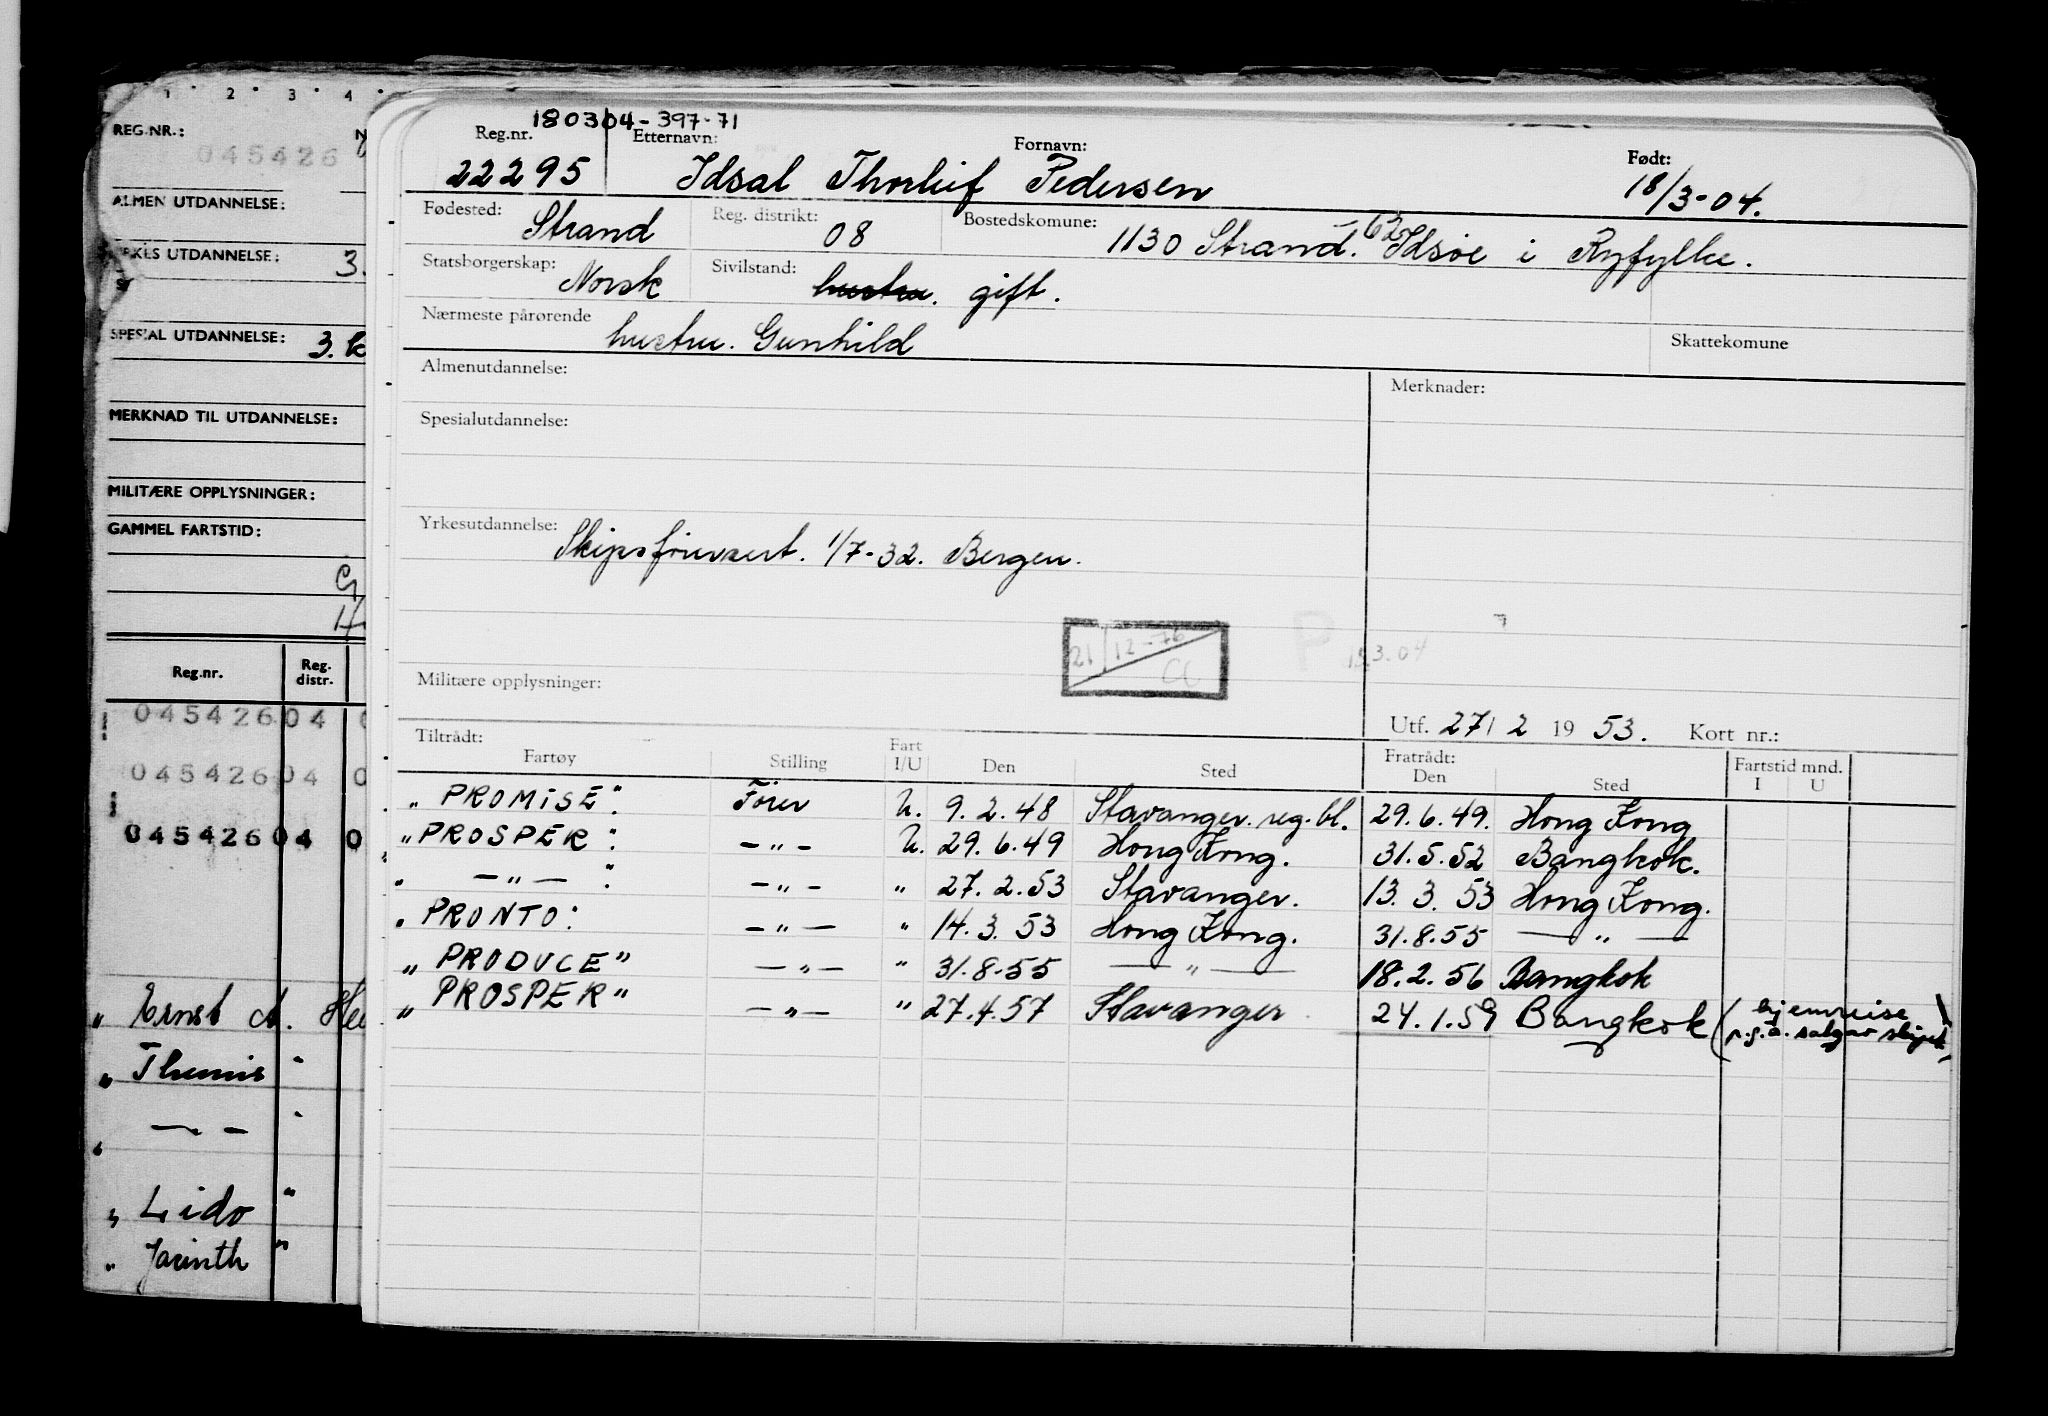 1 2 3 4
REG.NR.:
045426
ALMEN UTDANNELSE:
UTDANNELSE: 3.
SPESIAL UTDANNELSE: 3. k
MERKNAD TIL UTDANNELSE:
MILITÆRE OPPLYSNINGER:
GAMMEL FARTSTID:
Reg.nr. Reg. distr.
045426 04 0
045426 04 0
045426 04 0
" Ernst A.
" Themis "
" — " —
" Lido "
" Jacinth "
180304-397-71
Reg.nr. Etternavn: Fornavn: Født:
22295 Idsal Thorleif Pedersen 18/3-04.
Fødested: Strand Reg. distrikt: 08 Bostedskommune: 1130 Strand. 62 Idsøe i Ryfylke.
Statsborgerskap: Norsk Sivilstand: hustru. gift.
Nærmeste pårørende hustru. Gunhild Skattekomune
Almenutdannelse: Merknader:
Spesialutdannelse:
Yrkesutdannelse: Skipsførersert. 1/7-32. Bergen.
21/12-76 P 18.3.04
Militære opplysninger:
Utf. 27/2 1953. Kort nr.:
Tiltrådt: Fratrådt: Fartstid mnd.
Fartøy Stilling Fart I/U Den Sted Den Sted I U
" PROMISE": Fører U. 9.2.48 Stavanger. reg.bl. 29.6.49. Hong Kong
" PROSPER": —"— U. 29.6.49 Hong Kong. 31.5.52 Bangkok.
" —"— ": —"— " 27.2.53 Stavanger. 13.3.53 Hong Kong.
" PRONTO: —"— " 14.3.53 Hong Kong. 31.8.55 —"—
" PRODUCE" —"— " 31.8.55 —"— 18.2.56 Bangkok
" PROSPER" —"— " 27.4.57 Stavanger 24.1.59 Bangkok (hjemreise
p.g.a. salg av skipet)